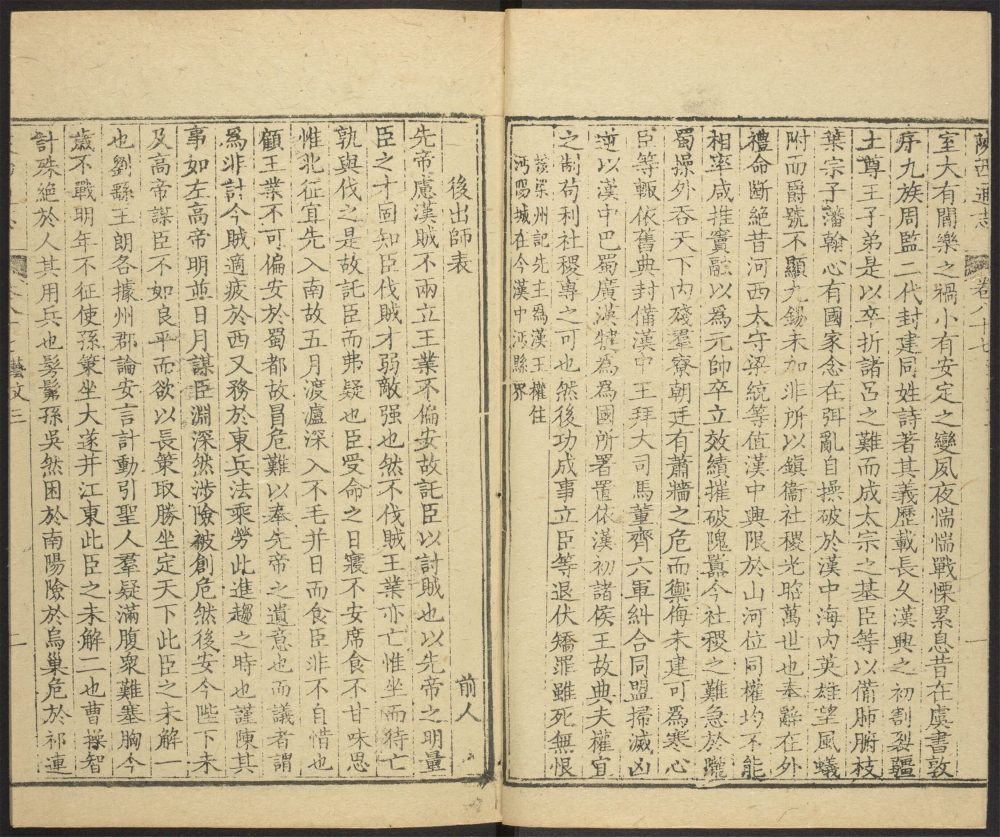 陝西通志 卷八十七
室大有閻樂之禍小有安定之變夙夜惴惴戰慄累息昔在虞書敦
序九族周監二代封建同姓詩著其義歷載長久漢興之初割裂疆
土尊王子弟是以卒折諸呂之難而成太宗之基臣等以備肺腑枝
葉宗子藩翰心有國家念在弭亂自操破於漢中海內英雄望風蟻
附而爵號不顯九錫未加非所以鎮衞社稷光昭萬世也奉辭在外
禮命斷絕昔河西太守梁統等值漢中興限於山河位同權均不能
相率咸推竇融以為元帥卒立效績摧破隗囂今社稷之難急於隴
蜀操外吞天下內殘羣寮朝廷有蕭牆之危而禦侮未建可為寒心
臣等輒依舊典封備漢中王拜大司馬董齊六軍糾合同盟掃滅凶
逆以漢中巴蜀廣漢犍為為國所署置依漢初諸侯王故典夫權宜
之制苟利社稷專之可也然後功成事立臣等退伏矯罪雖死無恨
梁州記先主為漢王權住
沔陽城在今漢中沔縣界
後出師表 前人
先帝慮漢賊不兩立王業不偏安故託臣以討賊也以先帝之明量
臣之才固知臣伐賊才弱敵强也然不伐賊王業亦亡惟坐而待亡
孰與伐之是故託臣而弗疑也臣受命之日寢不安席食不甘味思
惟北征宜先入南故五月渡瀘深入不毛并日而食臣非不自惜也
顧王業不可偏安於蜀都故冒危難以奉先帝之遺意也而議者謂
為非計今賊適疲於西又務於東兵法乘勞此進趨之時也謹陳其
事如左高帝明並日月謀臣淵深然涉險被創危然後安今陛下未
及高帝謀臣不如良平而欲以長策取勝坐定天下此臣之未解一
也劉繇王朗各據州郡論安言計動引聖人羣疑滿腹衆難塞胸今
歲不戰明年不征使孫策坐大遂并江東此臣之未解二也曹操智
計殊絕於人其用兵也髣髴孫吳然困於南陽險於烏巢危於祁連
藝文三
一